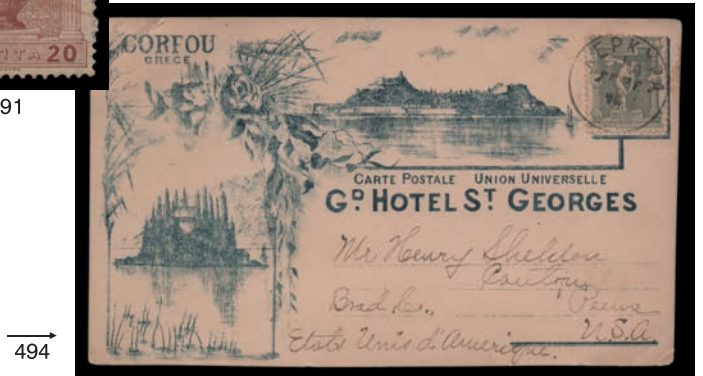 ΠΤΑ 20
91
CORFOU
GRÈCE
ΚΕΡΚΥΡΑ
CARTE POSTALE UNION UNIVERSELLE
GD HOTEL ST GEORGES
Mr Henry Sheldon
Canton
Brad Co., Penna
U.S.A.
Etats Unis d'Amerique.
494